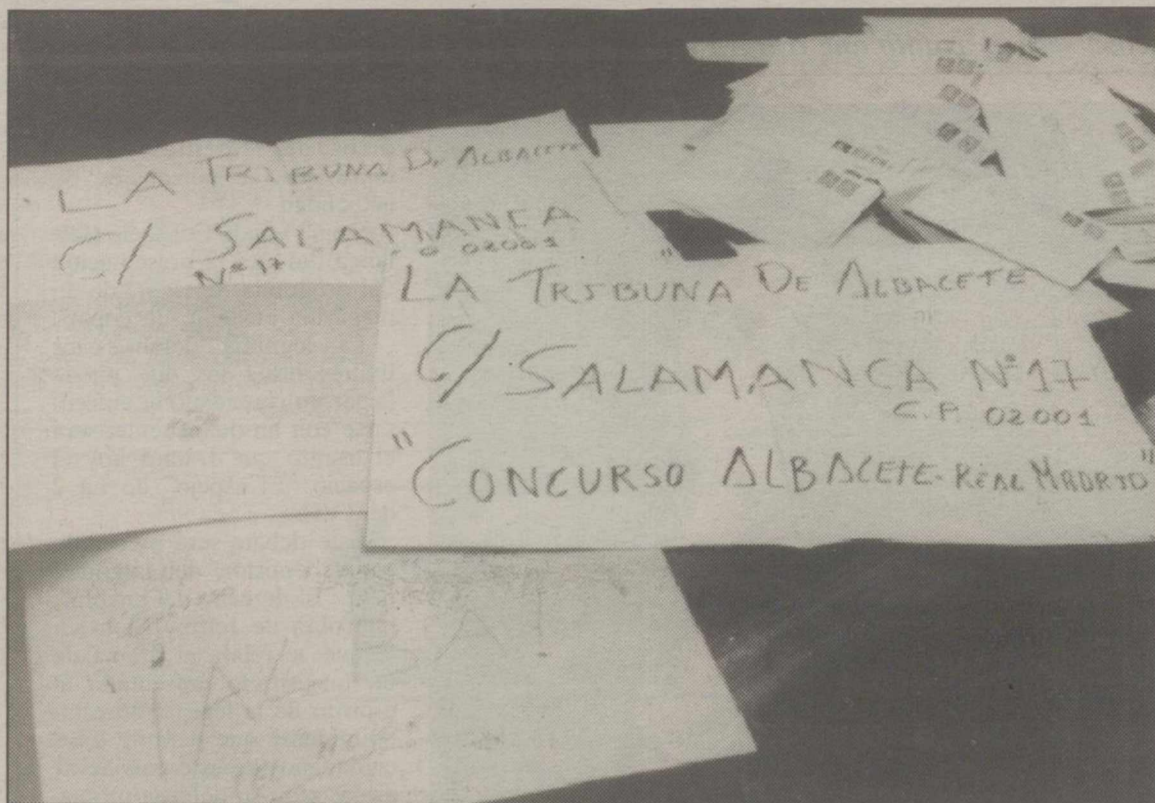 LA TRIBUNA DE ALBACETE
C/ SALAMANCA
Nº 17 02001
"LA TRIBUNA DE ALBACETE"
C/ SALAMANCA Nº 17
C.P. 02001
"CONCURSO ALBACETE-REAL MADRID"